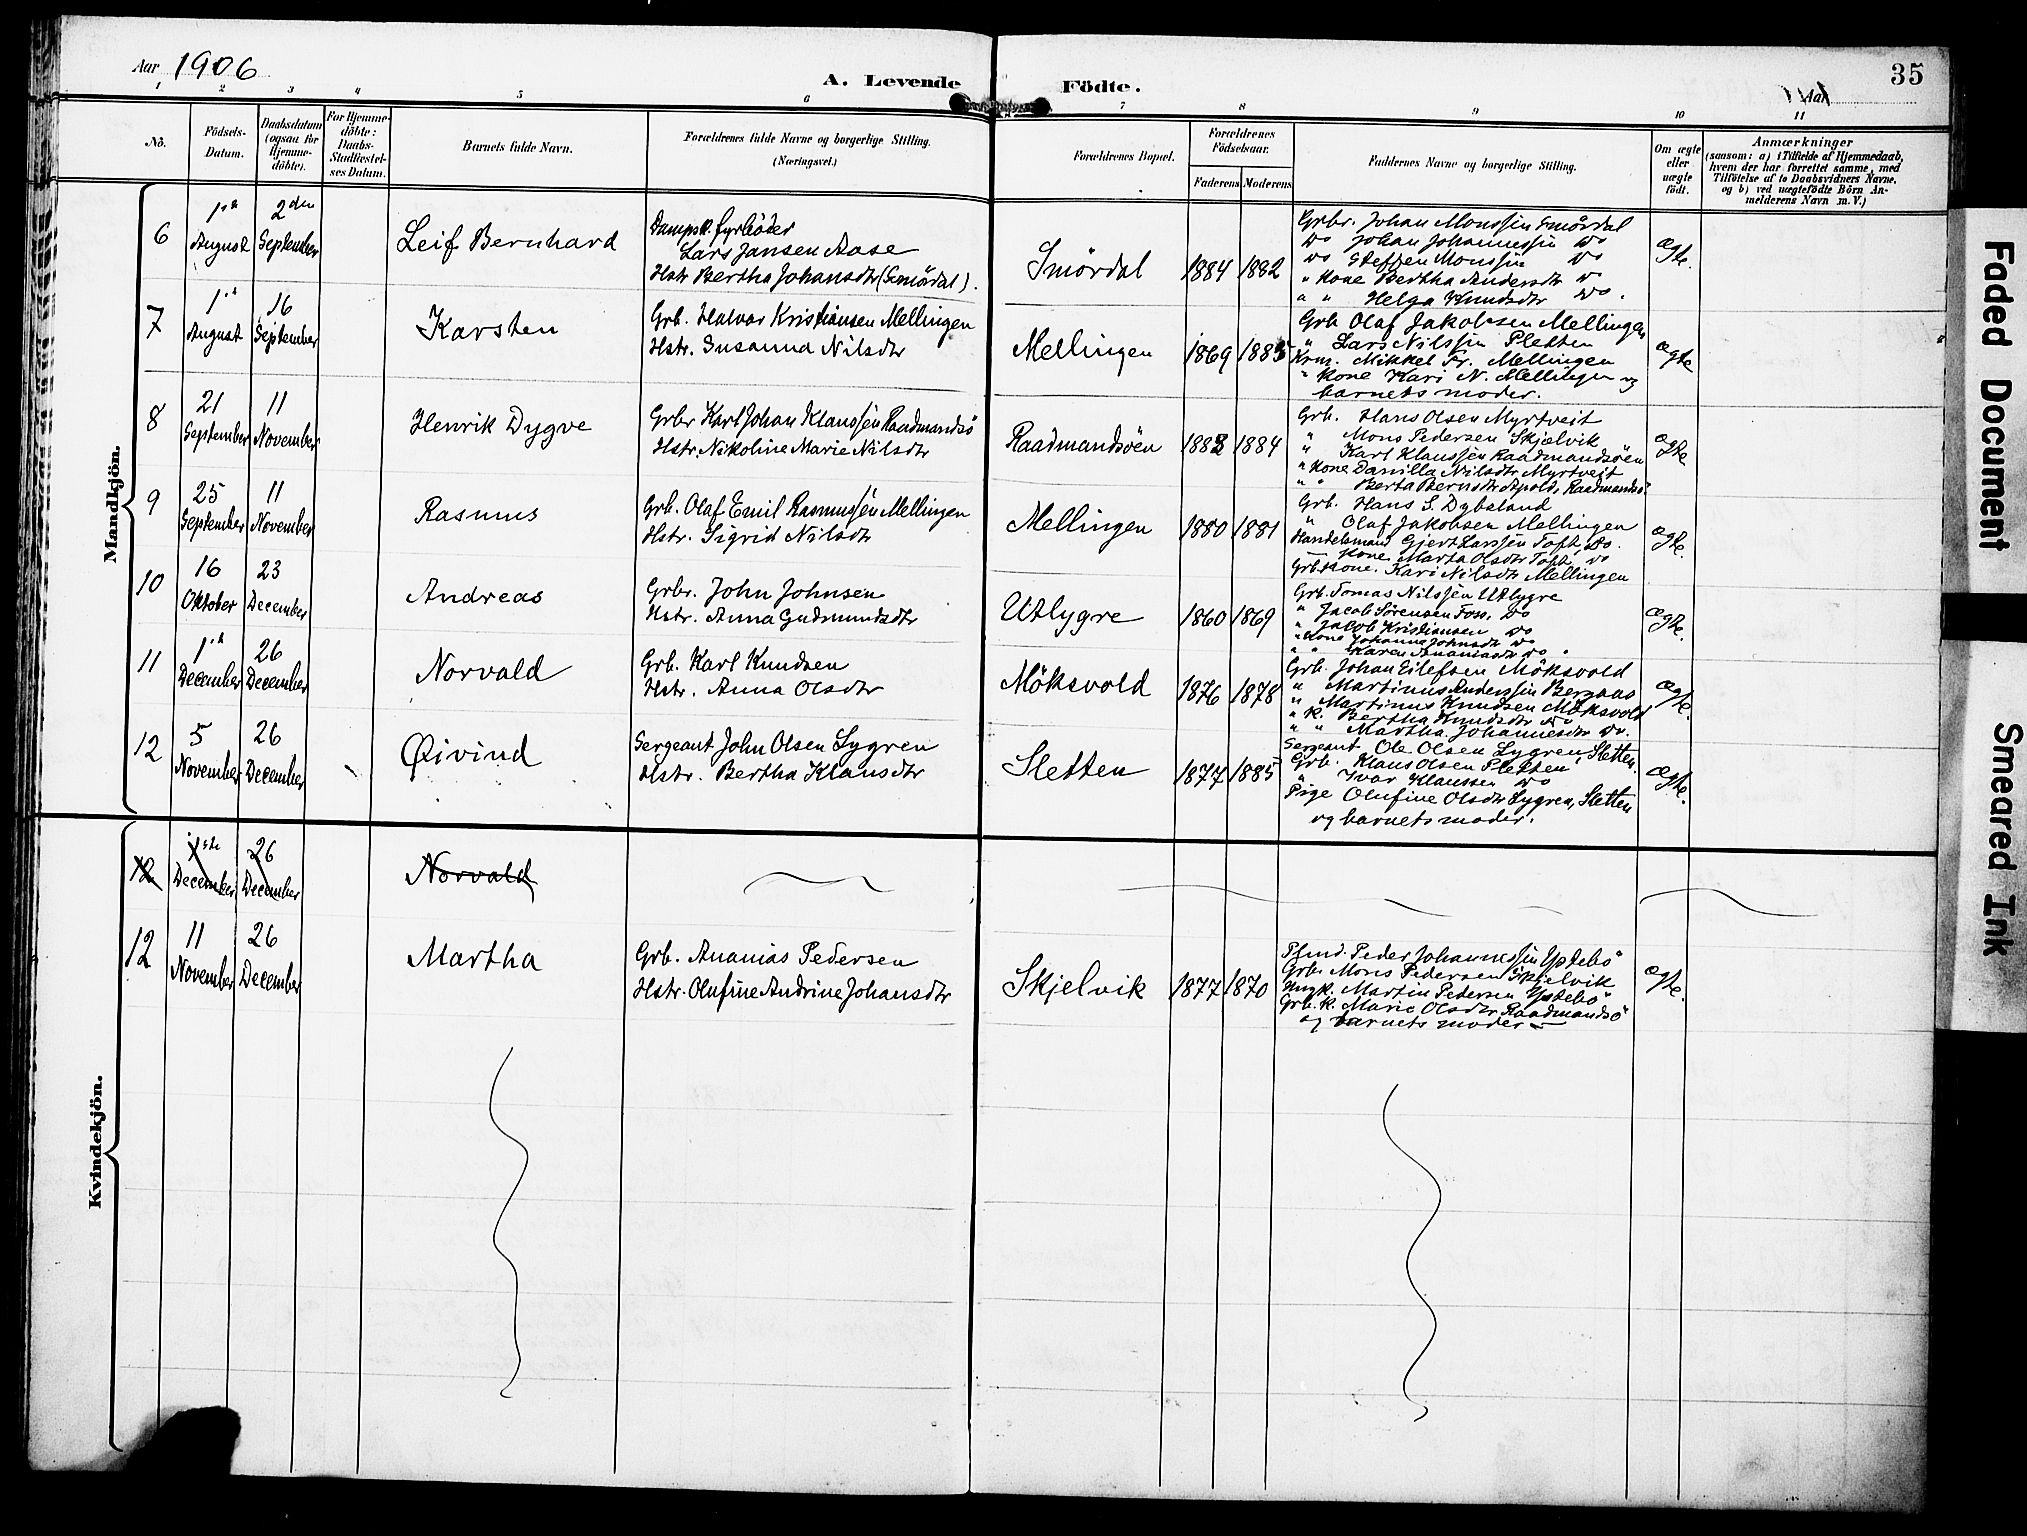 Aar 1906
A. Levende Födte.
35
Aar
1 2 3 4 5 6 7 8 9 10 11
No.
Födsels-Datum.
Daabsdatum (ogsaa for Hjemme-döbte).
For Hjemme-döbte: Daabs-Stadfæstel-ses Datum.
Barnets fulde Navn.
Forældrenes fulde Navne og borgerlige Stilling. (Næringsvei.)
Forældrenes Bopæl.
Forældrenes Födselsaar.
Faderens Moderens
Faddernes Navne og borgerlige Stilling.
Om ægte eller uægte födt.
Anmærkninger
(saasom: a) i Tilfælde af Hjemmedaab, hvem der har forrettet samme, med Tilföielse af to Daabsvidners Navne, og b) ved uægtefödte Börn An-melderens Navn m. V.)
Mandkjön.
6
1ste August
2den September
Leif Bernhard
Dampsk. fyrböder
Lars Jansen Aase
Hstr Bertha Johansdtr (Smördal).
Smördal
1884 1882
Grbr. Johan Monssøn Smördal
Do Johan Johannessøn Do
Do Steffen Monssøn Do
" Kone Bertha Andersdtr Do
" " Helga Knudsdtr Do.
Ægte.
7
1ste August
16 September
Karsten
Grb. Halvor Kristiansen Mellingen
Hstr. Susanna Nilsdtr
Mellingen
1869 1885
Grb Olaf Jakobsen Mellingen
" Lars Nilssøn Sletten
Krm. Mikkel Fr. Mellingen
" Kone Kari N. Mellingen og
barnets moder.
Ægte
8
21 September
11 November
Henrik Dygve
Grbr Karl Johan Klaussøn Raadmandsö
Hstr. Nikoline Marie Nilsdtr
Raadmandsöen
1883 1884
Grb. Hans Olsen Myrtveit
" Mons Pedersen Skjelvik
" Karl Klaussøn Raadmandsöen
" Kone Danilla Nilsdtr Myrtveit
" " Berta Berntsdtr Apold, Raadmandsö.
Ægte
9
25 September
11 November
Rasmus
Grb. Olaf Emil Rasmussøn Mellingen
Hstr. Sigrid Nilsdtr
Mellingen
1880 1881
Grb. Hans S. Dybsland
" Olaf Jakobsen Mellingen
Handelsmand Gjert Larssøn Toft, Do.
— Kone Marta Olsdtr Toft, Do
Grb. Kone. Kari Nilsdtr Mellingen
Ægte.
10
16 Oktober
23 December
Andreas
Grbr. John Johnsen
Hstr. Anna Gudmundsdtr
Utlygre
1860 1869
Grb. Tomas Nilssøn Utlygre
" Jacob Sörensen Foss, Do
" Jacob Kristiansen Do
" Kone Johanna Johnsdtr Do
" " Karen Ananiasdtr Do.
Ægte.
11
1ste December
26 December
Norvald
Grb. Karl Knudsen
Hstr. Anna Olsdtr
Möksvold
1876 1878
Grb. Johan Eilefsen Möksvold
" Martinus Anderssøn Bergaas
" Martinus Knudsen Möksvold
" K. Bertha Knudsdtr Do
" " Martha Johannesdtr Do.
Ægte.
12
5 November
26 December
Øivind
Sergeant John Olsen Lygren
Hstr. Bertha Klausdtr
Sletten
1877 1885
Sergeant Ole Olsen Lygren, Sletten.
Grb. Klaus Olsen Sletten
" Ivar Klaussen Do
Pige Olufine Olsdtr Lygren, Sletten
og barnets moder.
Ægte.
Kvindekjön.
12
1ste December
26 December
Norvald
12
11 November
26 December
Martha
Grb. Ananias Pedersen
Hstr. Olufine Andrine Johansdtr
Skjelvik
1877 1870
Peder Johannessøn Ystebö
Grb. Mons Pedersen Skjelvik
Ungk. Martin Pedersen Ystebö
Grb. K. Marie Olsdtr Raadmandsö
og barnets moder —
Ægte.
Faded Document
Smeared Ink